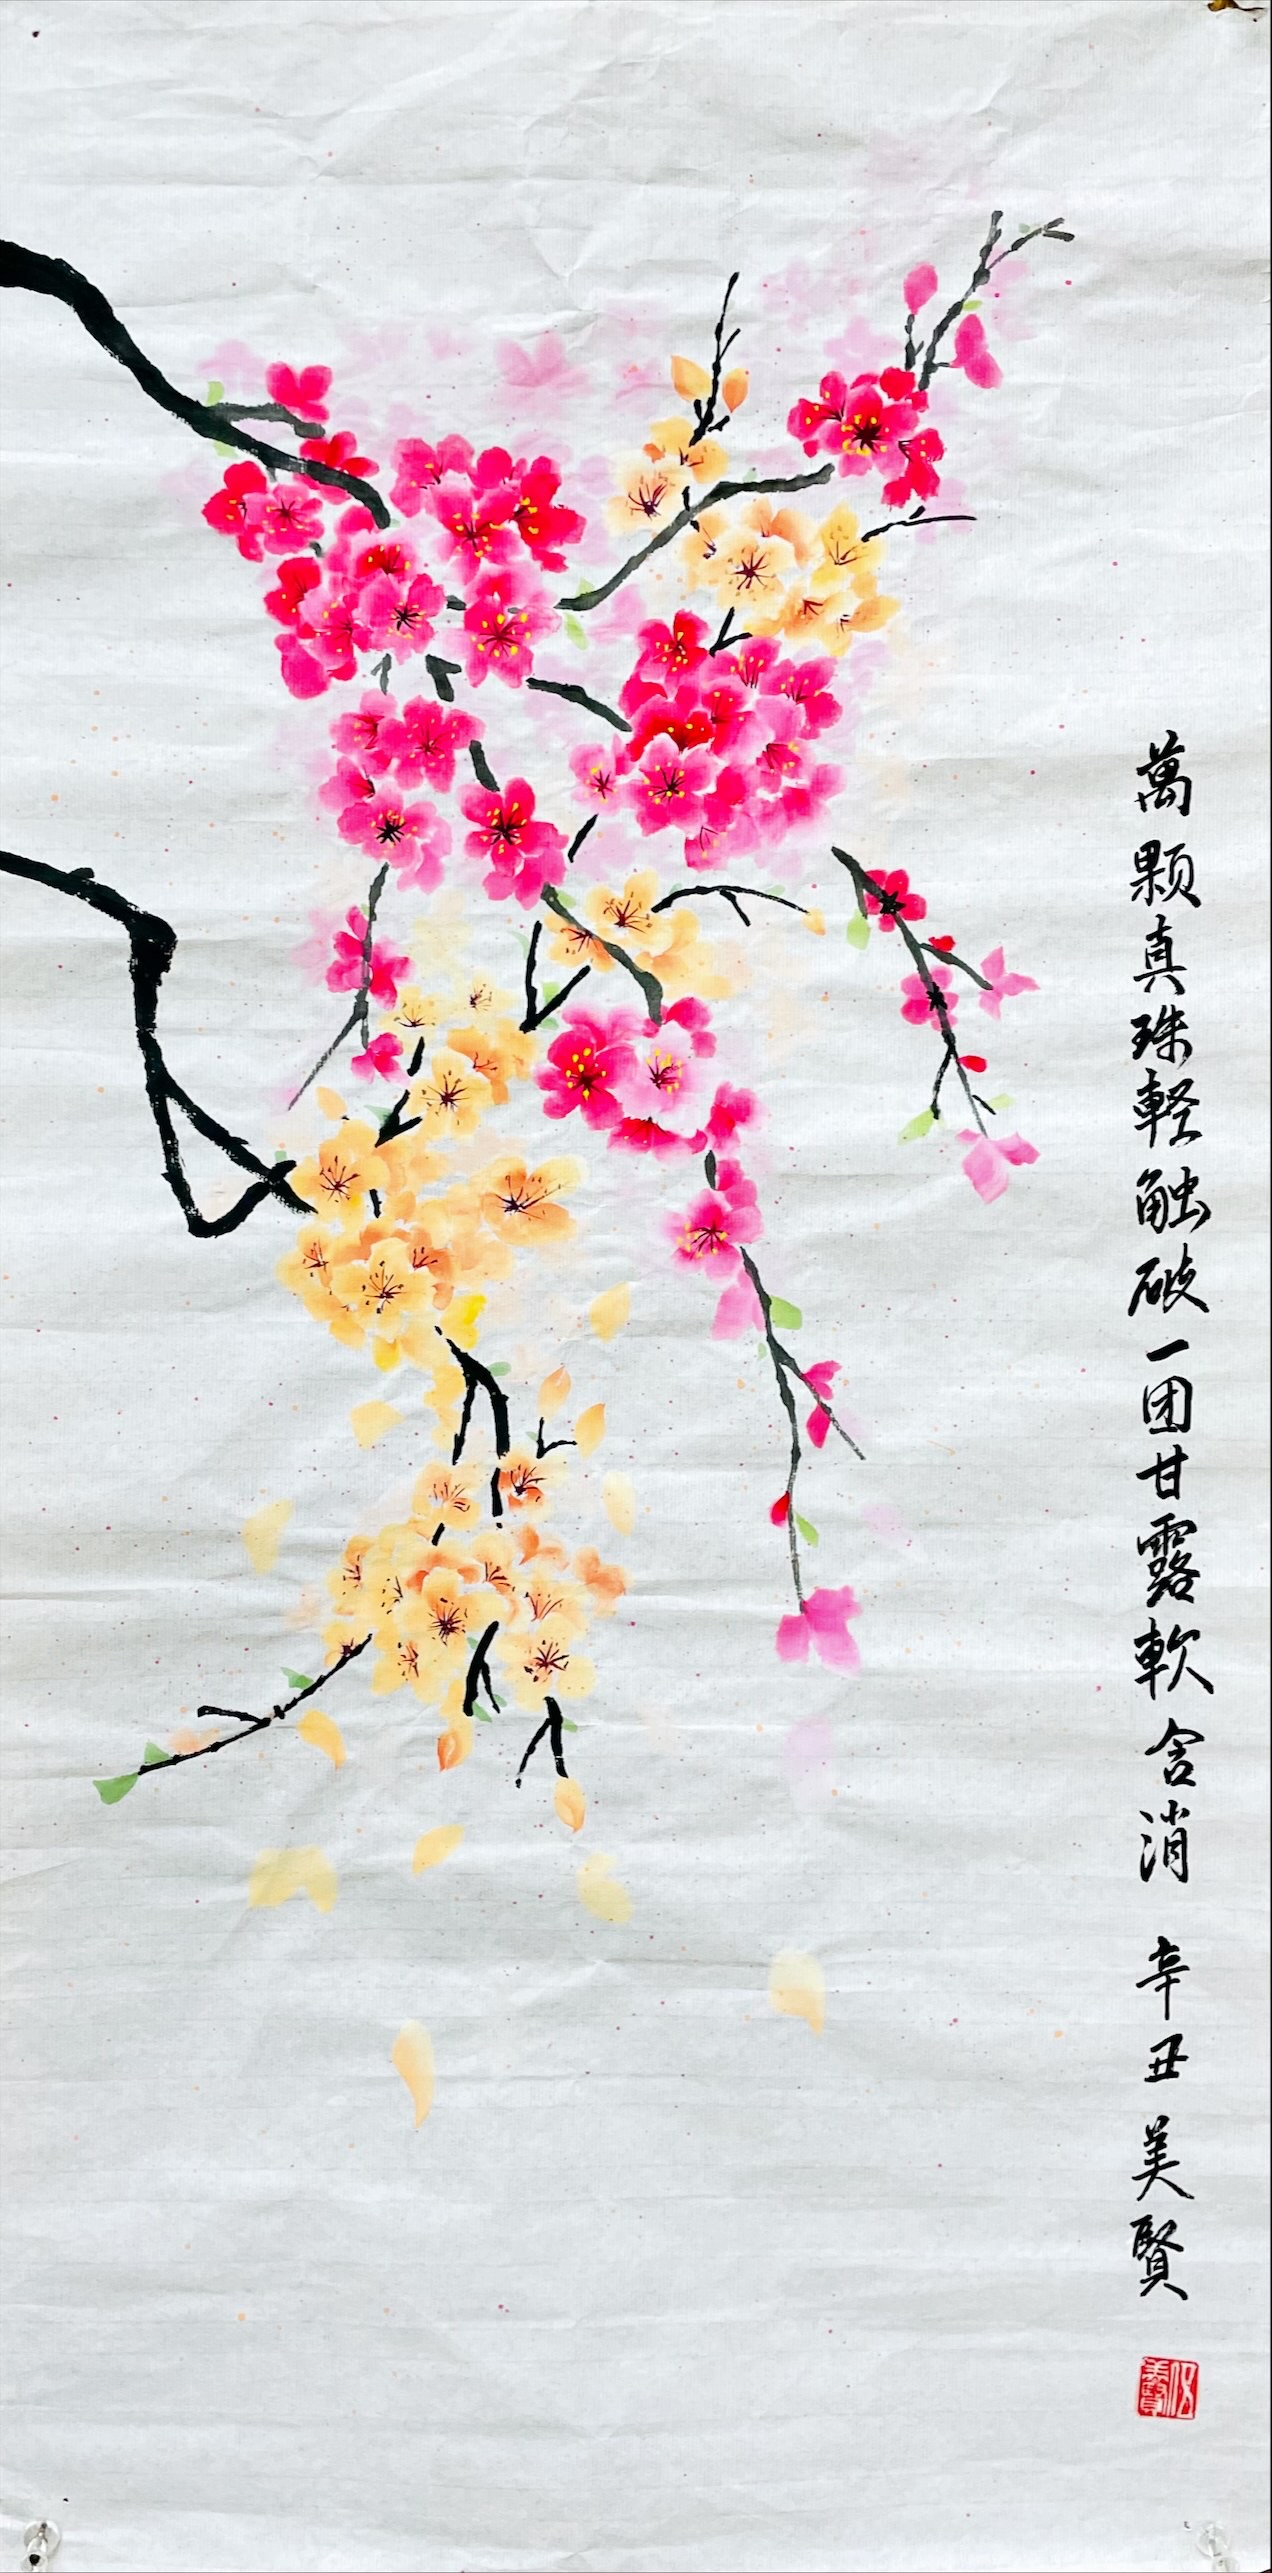 萬顆真珠軽触破一团甘露軟含消 辛丑 美賢